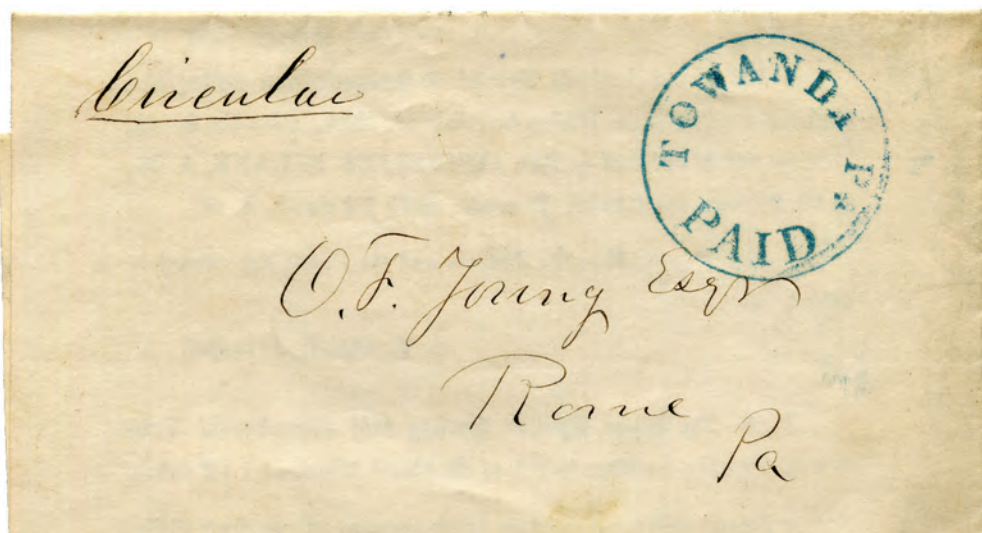 Circular
TOWANDA Pa
PAID
O.F. Young Esqr
Rome
Pa